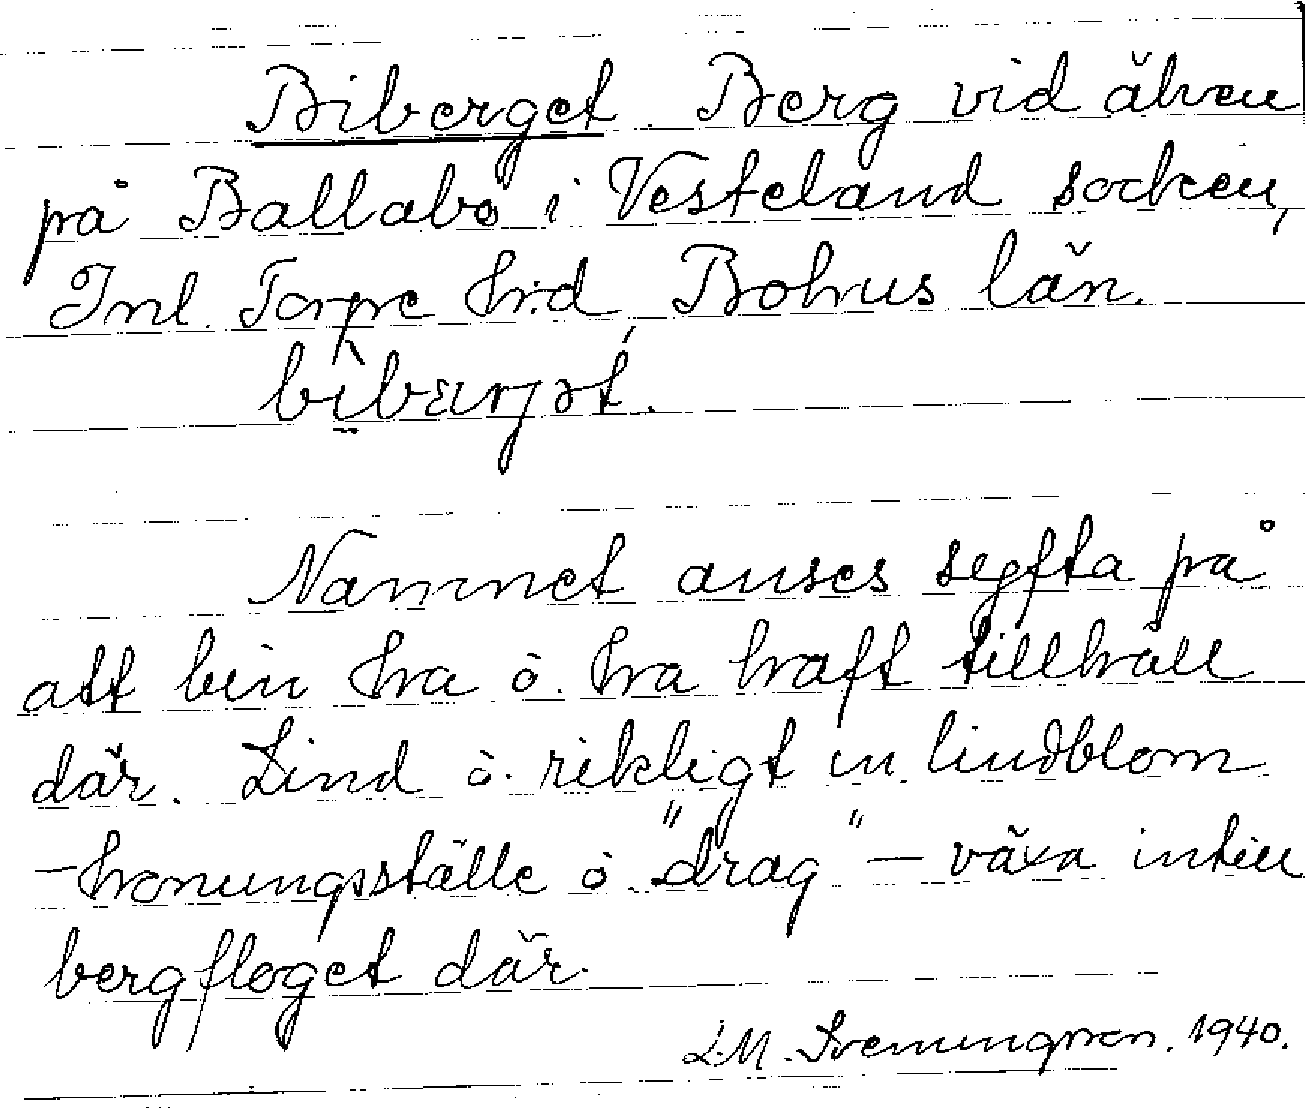 Biberget. Berg vid älven
på Ballabo i Vesteland socken,
Inl. Torpe hrd, Bohus län.
Namnet anses syfta på
att bin ha o. ha haft tillhåll
där. Lind o. rikligt m. lindblom
- honungsställe o. "drag" - växa intill
bergfloget där.
L.M. Svenungsson. 1940.